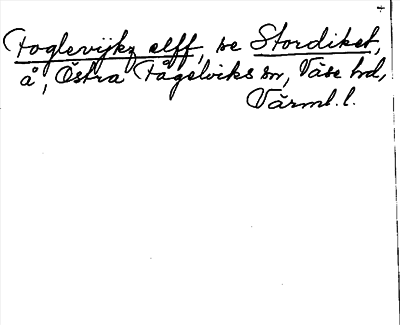 Foglevijkz elff, se Stordiket,
å, Östra Fågelviks sn, Väse hd,
Värml. l.